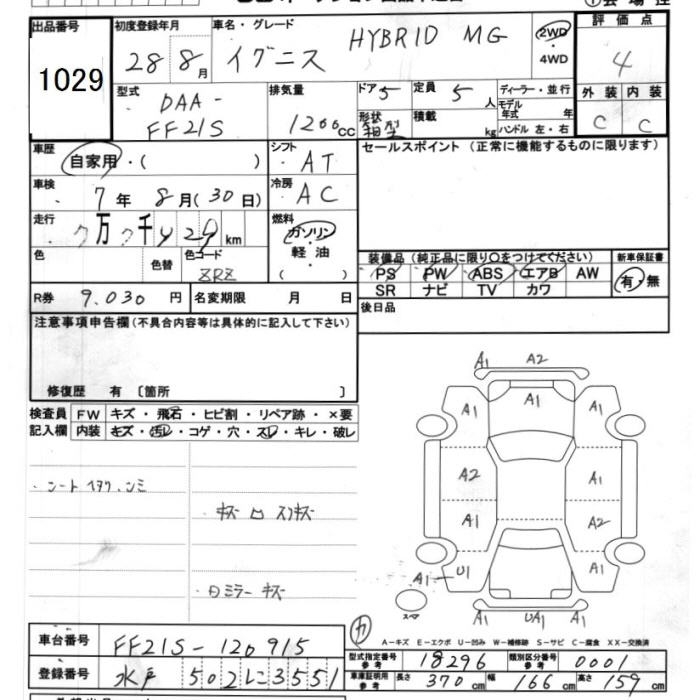 出品番号
1029
初度登録年月
28 8月
車名・グレード
イグニス HYBRID MG
2WD
4WD
評価点
4
外装 内装
C C
型式
DAA-
FF21S
排気量
1200cc
ドア 5
形状
箱型
定員 5 人
積載 kg
ディーラー・並行
モデル年式 年
ハンドル 左・右
車歴
自家用・( )
シフト
AT
セールスポイント(正常に機能するものに限ります)
車検
7年 8月(30日)
冷房
AC
走行
7万7千929km
燃料
ガソリン
軽油
( )
色
色替
色コード
ZRZ
装備品(純正品に限り○をつけてください)
PS PW ABS エアB AW
SR ナビ TV カワ
新車保証書
有・無
R券 9.030円
名変期限 月 日
後日品
注意事項申告欄(不具合内容等は具体的に記入して下さい)
修復歴 有 〔箇所 〕
検査員記入欄
FW キズ・飛石・ヒビ割・リペア跡・×要
内装 キズ・汚レ・コゲ・穴・スレ・キレ・破レ
キズ ロ スリキズ
ロミラー キズ
A1 A2
A1 A1 A1
A2 A1
A1 A2
U1 A1
A1
スペア
A1 UA1 A1
カ
A-キズ E-エクボ U-凹み W-補修跡 S-サビ C-腐食 XX-交換済
車台番号 FF21S-120915
登録番号 水戸 502 に 3551
型式指定番号 参考 18296
類別区分番号 参考 0001
車庫証明用 参考 長さ 370cm 幅 166cm 高さ 159cm